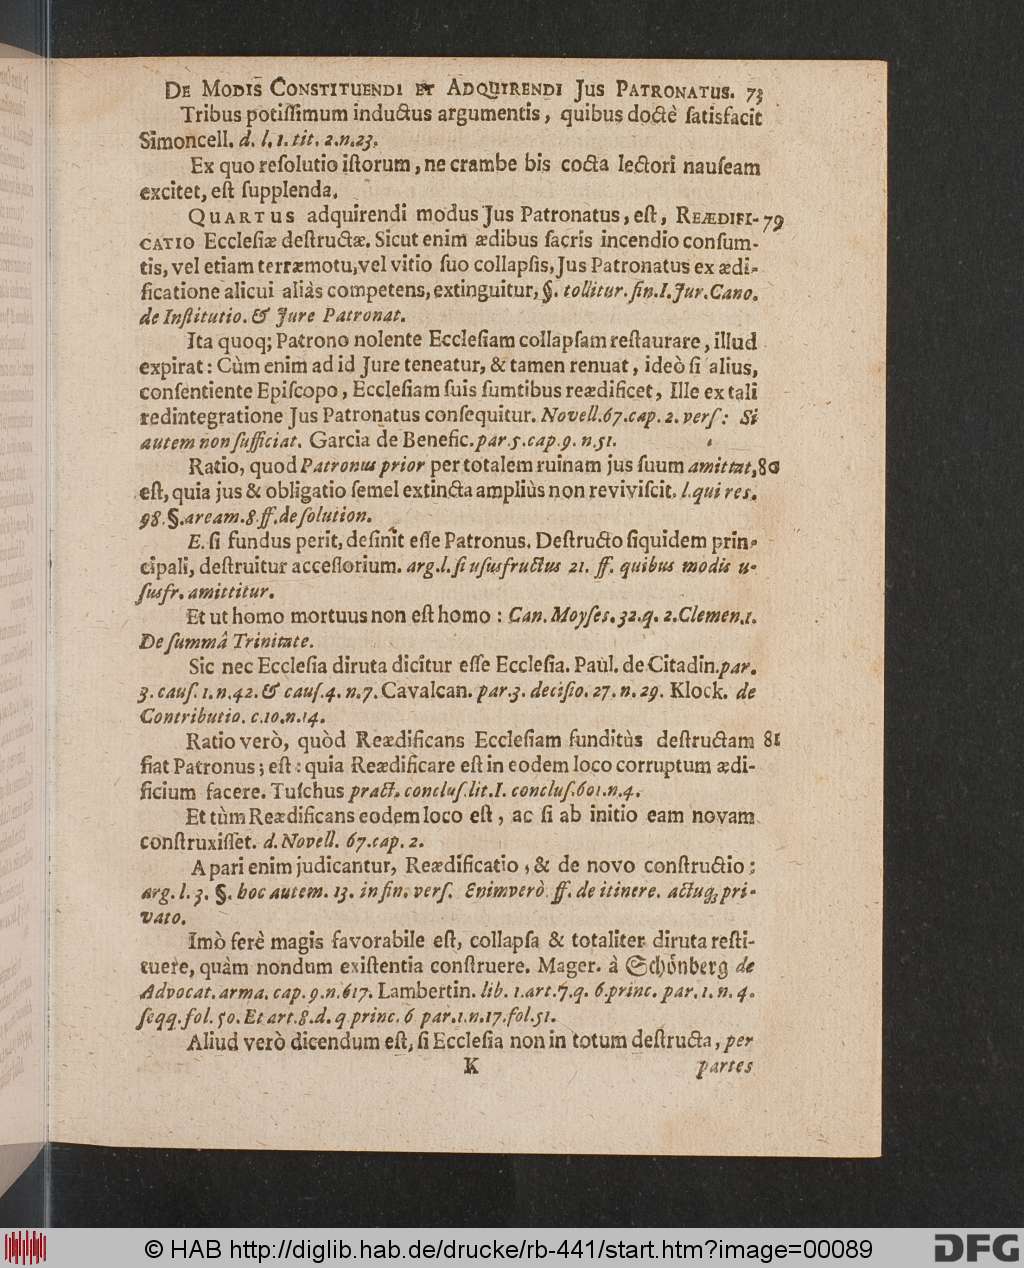 De Modis Constituendi et Adquirendi Jus Patronatus. 73
Tribus potiſſimum inductus argumentis, quibus doctè ſatisfacit
Simoncell. d. l. 1. tit. 2. n. 23.
Ex quo reſolutio iſtorum, ne crambe bis cocta lectori nauſeam
excitet, eſt ſupplenda.
QUARTUS adquirendi modus Jus Patronatus, eſt, REÆDIFI- 79
CATIO Eccleſiæ deſtructæ. Sicut enim ædibus ſacris incendio conſum-
tis, vel etiam terræmotu, vel vitio ſuo collapſis, Jus Patronatus ex ædi-
ficatione alicui aliàs competens, extinguitur, §. tollitur. fin. I. Jur. Cano.
de Inſtitutio. & Jure Patronat.
Ita quoq; Patrono nolente Eccleſiam collapſam reſtaurare, illud
expirat: Cùm enim ad id Jure teneatur, & tamen renuat, ideò ſi alius,
conſentiente Epiſcopo, Eccleſiam ſuis ſumtibus reædificet, Ille ex tali
redintegratione Jus Patronatus conſequitur. Novell. 67. cap. 2. verſ: Si
autem non ſufficiat. Garcia de Benefic. par. 5. cap. 9. n. 51.
Ratio, quod Patronus prior per totalem ruinam jus ſuum amittat, 80
eſt, quia jus & obligatio ſemel extincta ampliùs non reviviſcit. l. qui res.
98. §. aream. 8. ff. de ſolution.
E. ſi fundus perit, deſinit eſſe Patronus. Deſtructo ſiquidem prin-
cipali, deſtruitur acceſſorium. arg. l. ſi uſusfructus 21. ff. quibus modis u-
ſusfr. amittitur.
Et ut homo mortuus non eſt homo: Can. Moyſes. 32. q. 2. Clemen. 1.
De ſummâ Trinitate.
Sic nec Eccleſia diruta dicitur eſſe Eccleſia. Paul. de Citadin. par.
3. cauſ. 1. n. 42. & cauſ. 4. n. 7. Cavalcan. par. 3. deciſio. 27. n. 29. Klock. de
Contributio. c. 10. n. 14.
Ratio verò, quòd Reædificans Eccleſiam funditùs deſtructam 81
fiat Patronus; eſt: quia Reædificare eſt in eodem loco corruptum ædi-
ficium facere. Tuſchus pract. concluſ. lit. I. concluſ. 601. n. 4.
Et tùm Reædificans eodem loco eſt, ac ſi ab initio eam novam
conſtruxiſſet. d. Novell. 67. cap. 2.
A pari enim judicantur, Reædificatio, & de novo conſtructio;
arg. l. 3. §. hoc autem. 13. in fin. verſ. Enimverò ff. de itinere. actuq; pri-
vato.
Imò ferè magis favorabile eſt, collapſa & totaliter diruta reſti-
tuere, quàm nondum exiſtentia conſtruere. Mager. à Schönberg de
Advocat. arma. cap. 9. n. 617. Lambertin. lib. 1. art. 7. q. 6. princ. par. 1. n. 4.
ſeqq. fol. 50. Et art. 8. d. q princ. 6 par. 1. n. 17. fol. 51.
Aliud verò dicendum eſt, ſi Eccleſia non in totum deſtructa, per
K partes
© HAB http://diglib.hab.de/drucke/rb-441/start.htm?image=00089
DFG